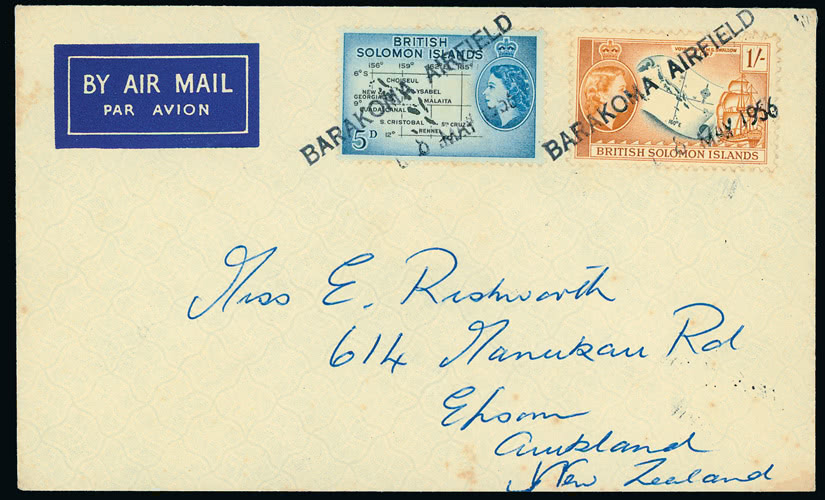 BY AIR MAIL
PAR AVION
BRITISH
SOLOMON ISLANDS
156° 159° 162° 165°
6°S
CHOISEUL
NEW GEORGIA
YSABEL
9°
MALAITA
GUADALCANAL
S. CRISTOBAL
STA CRUZ
RENNELL
12°
5D
BARAKOMA AIRFIELD
MAY 1956
1/-
BRITISH SOLOMON ISLANDS
BARAKOMA AIRFIELD
MAY 1956
Miss E. Rishworth
614 Manukau Rd
Epsom
Auckland
New Zealand